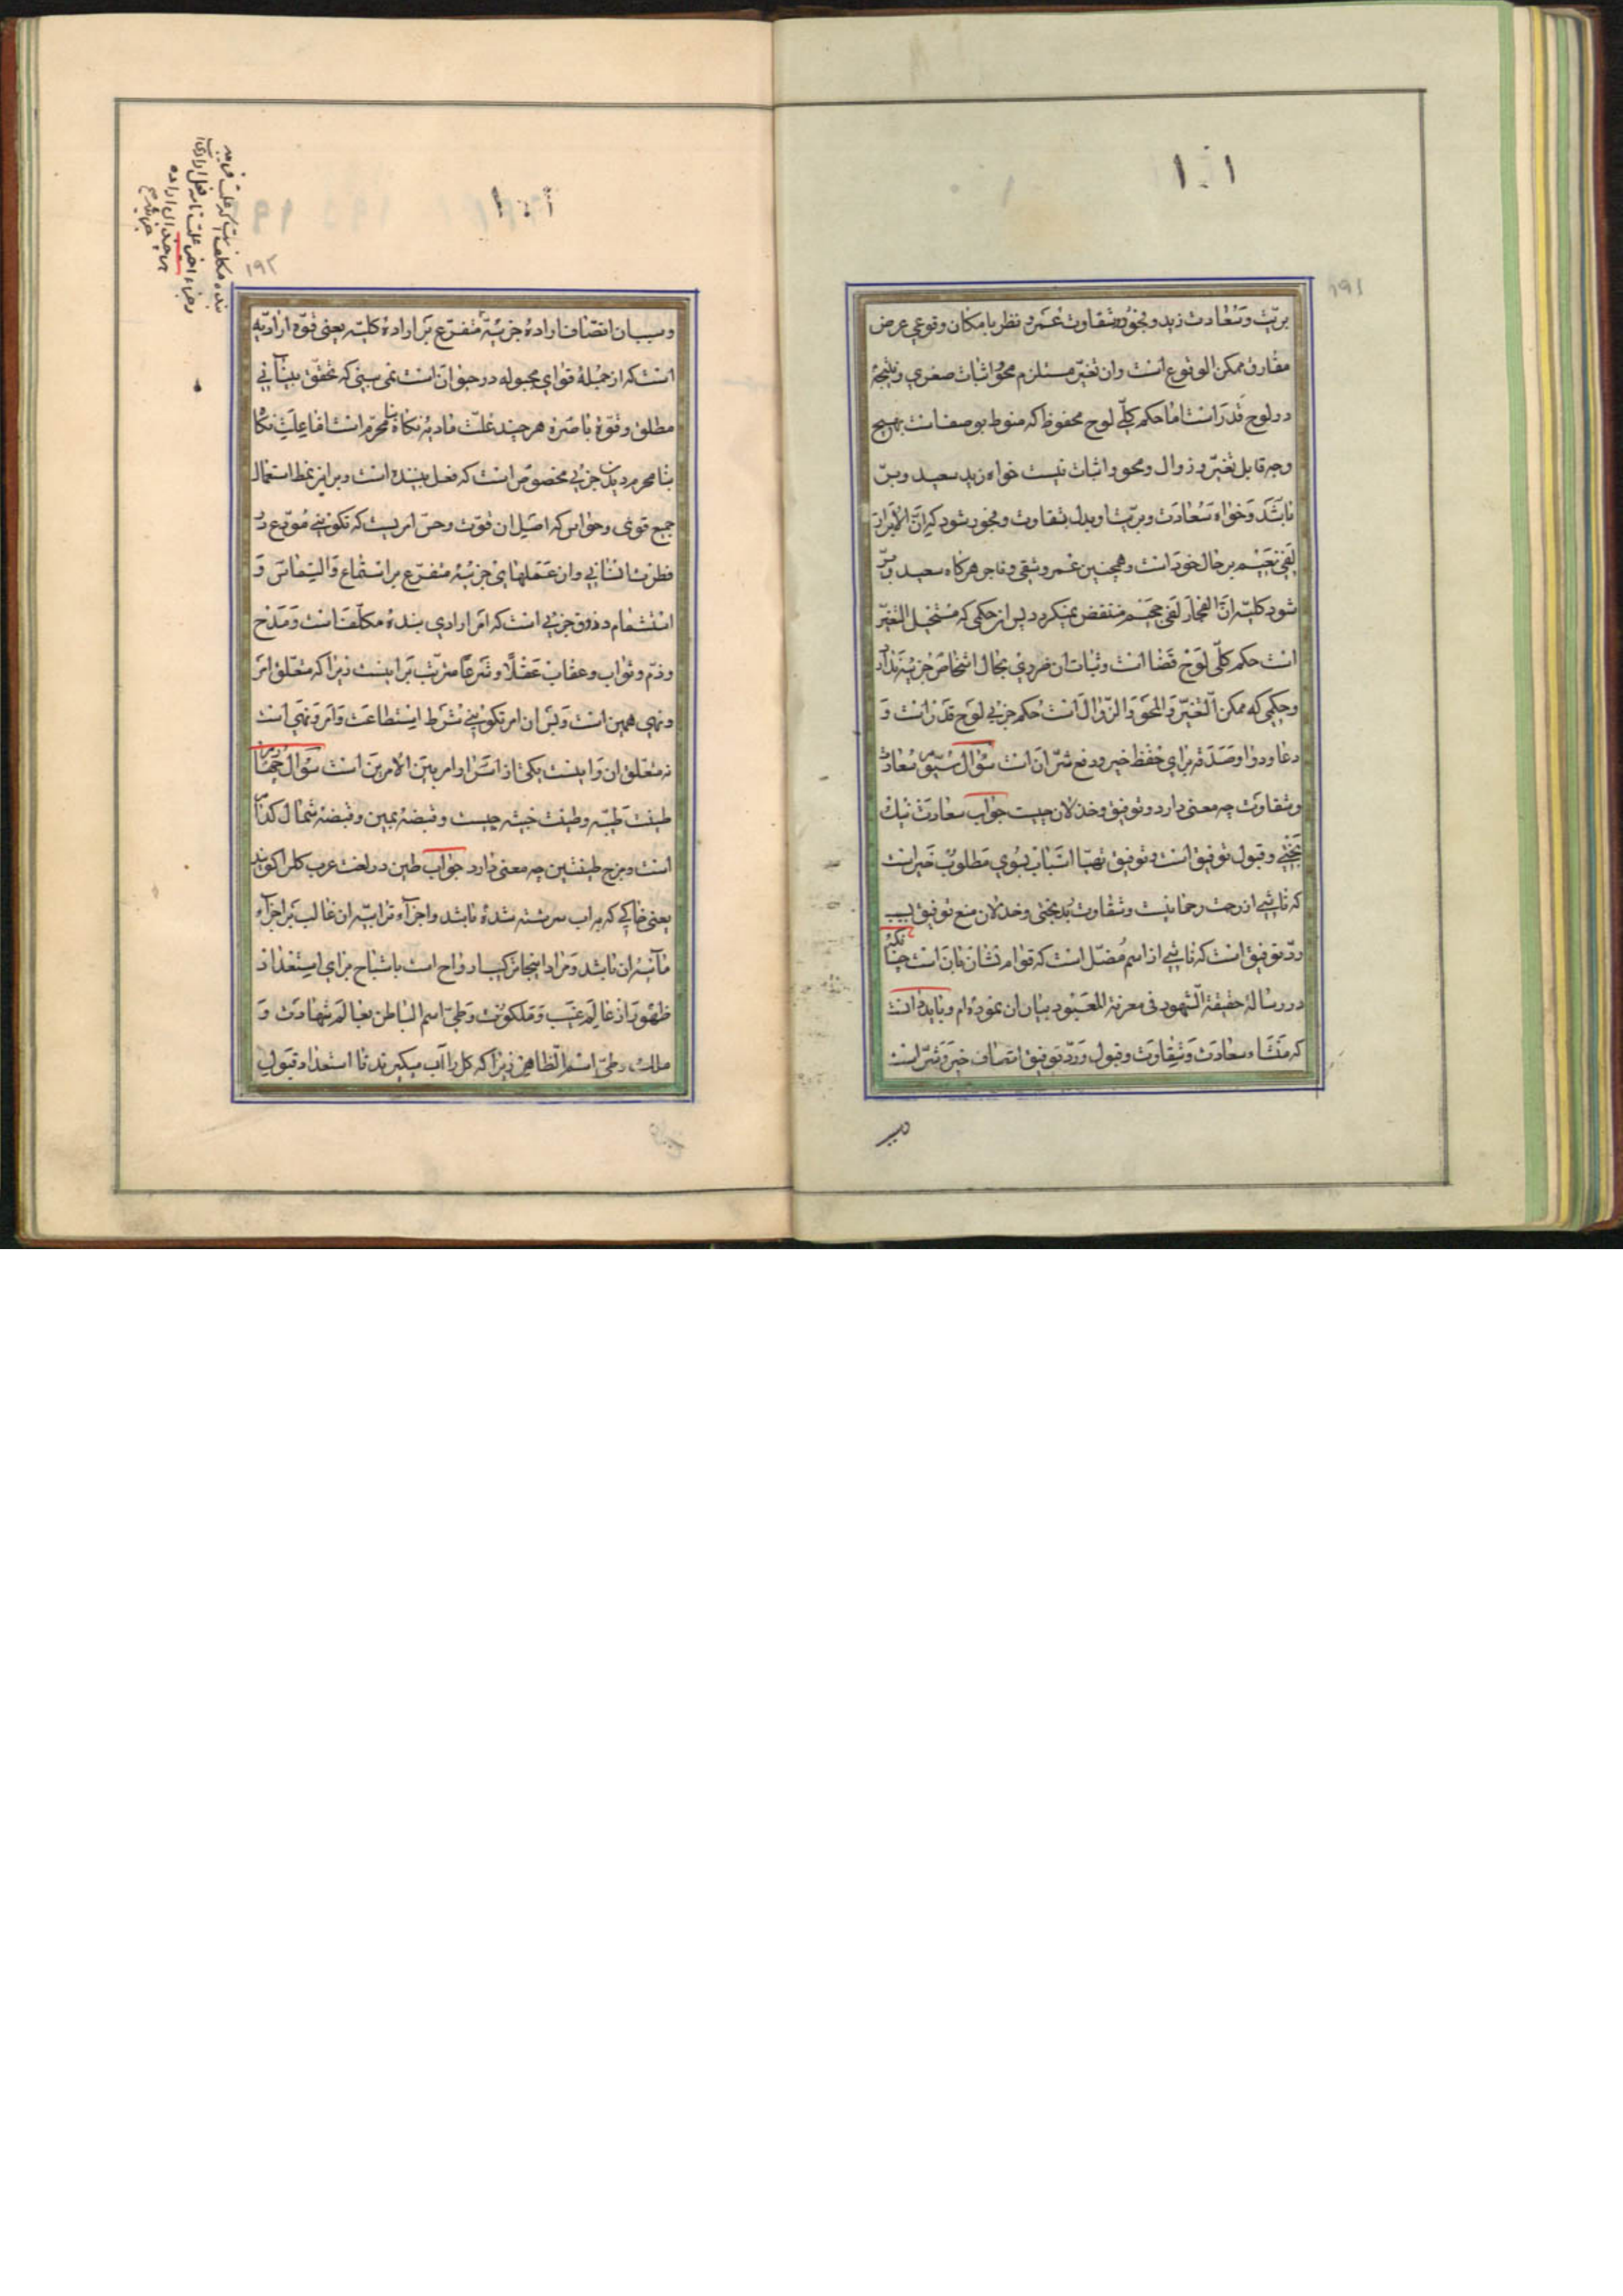 ١٠١
١٩١
بریّت و سعادت زید و فجور و شقاوت عمرو نظر بامکان وقوعی عرض
مفارق ممکن الوقوع است وان تغیّر مستلزم محو و اثبات صغری و نتیجهٔ
در لوح قدر است اما حکم کلّی لوح محفوظ که منوط بوصفانست بهیچ
وجه قابل تغیّر و زوال و محو و اثبات نیست خواه زید سعید و برّ
باشد و خواه سعادت و بریّت او بدل بشقاوت و فجور شود که انّ الابرار
لفی نعیم بر حال خود است و همچنین عمرو شقی و فاجر هرکاه سعید و برّ
شود کلیّه انّ الفجار لفی جحیم منتقض نمیکردد پس از حکمی که مستحیل التغیّر
است حکم کلّی لوح قضا است و ثبات ان ضرری بحال اشخاص جزئیه ندارد
و حکمی که ممکن التغیّر و المحو و الزّوال است حکم جزئی لوح قدر است و
دعا و دوا و صدقه برای حفظ خیر و دفع شرّ ان است سؤال سیّوم سعادت
و شقاوت چه معنی دارد و توفیق و خذلان چیست جواب سعادت نیک
بختی و قبول توفیق است و توفیق تهیّأ اسباب بسوی مطلوب خیر است
که ناشی از رحمت رحمانیست و شقاوت بدبختی و خذلان منع توفیق بسبب
ردّ توفیق است که ناشی از اسم مُضلّ است که قوام نشان بان است چنانکه
در رسالهٔ حقیقة الشهود فی معرفة المعبود بیان ان نموده ام و باید دانست
که منشاء سعادت و شقاوت و قبول و ردّ توفیق اتصاف خیر و شرّ است
١٩٢
و بیان اتصاف ارادهٔ جزئیّهٔ متفرّع بر ارادهٔ کلیّه یعنی قوّه ارادیّه
است که از جملهٔ قوای مجبوله در حیوان است نمی بینی که تحقّق بینائی
مطلق و قوّهٔ باصره هر چند علّت مادیّهٔ نکاه بنا محرم است اما علّت نکاه
بنا محرم دیدن جزئی مخصوص است که فعل بیننده است و بر این نمط استعمال
جمیع قوی و حواس که اصل ان قوّت و حسّ امریست که تکوینی مُودَع در
فطرت انسانی وان عملهای جزئیهٔ متفرّع بر استماع و التماس و
استشمام و ذوق جزئی است که امر ارادی بندهٔ مکلّف است و مدح
و ذمّ و ثواب و عقاب عقلاً و شرعاً مترتّب بر اینست زیرا که متعلّق امر
و نهی همین است و بس ان امر تکوینی شرط استطاعت و امر و نهی است
نه متعلّق ان و اینست یکی از اسرار امر بین الامرین است سؤال چهارم
طینت طیّبه و طینت خبیثه چیست و قبضهٔ یمین و قبضهٔ شمال کدام
است و مزج طینتین چه معنی دارد جواب طین در لغت عرب کل را کویند
یعنی خاکی که به اب سرشته شده باشد و اجزاء ترابیّه ان غالب بر اجزاء
مائیه ان باشد و مراد اینجا ترکیب ارواح است باشباح برای استعداد
ظهور از عالم غیب و ملکوت و طیّ اسم الباطن بعالم شهادت و
ملک و طیّ اسم الظاهر زیرا که کل را اب میکیرند تا استعداد قبول